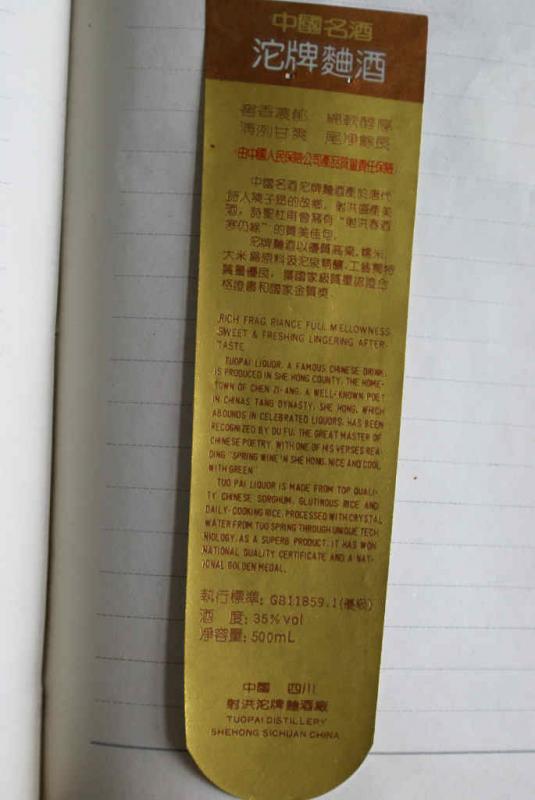 中國名酒
沱牌麯酒
窖香濃郁 綿軟醇厚
清冽甘爽 尾淨餘長
由中國人民保險公司產品質量責任保險
中國名酒沱牌麯酒產於唐代
詩人陳子昂的故鄉，射洪區產美
酒，詩聖杜甫曾寫有“射洪春酒
寒仍綠”的贊美佳句。
沱牌麯酒以優質高粱、糯米、
大米為原料汲沱泉精釀，工藝獨特
質量優良，獲國家級質量認證合
格證書和國家金質獎。
RICH FRAG RIANCE FULL MELLOWNESS
SWEET & FRESHING LINGERING AFTER-
TASTE
TUOPAI LIQUOR, A FAMOUS CHINESE DRINK,
IS PRODUCED IN SHE HONG COUNTY, THE HOME-
TOWN OF CHEN ZI-ANG, A WELL-KNOWN POET
IN CHINAS TANG DYNASTY, SHE HONG, WHICH
ABOUNDS IN CELEBRATED LIQUORS, HAS BEEN
RECOGNIZED BY DU FU, THE GREAT MASTER OF
CHINESE POETRY, WITH ONE OF HIS VERSES REA-
DING "SPRING WINE IN SHE HONG, NICE AND COOL
WITH GREEN"
TUO PAI LIQUOR IS MADE FROM TOP QUALI-
TY CHINESE SORGHUM, GLUTINOUS RICE AND
DAILY-COOKING RICE, PROCESSED WITH CRYSTAL
WATER FROM TUO SPRING THROUGH UNIQUE TECH
NIOLOGY. AS A SUPERB PRODUCT, IT HAS WON
NATIONAL QUALITY CERTIFICATE AND A NAT-
IONAL GOLDEN MEDAL.
執行標準：GB11859.1(優級)
酒 度：35%vol
凈容量：500mL
中國 四川
射洪沱牌麯酒廠
TUOPAI DISTILLERY
SHEHONG SICHUAN CHINA